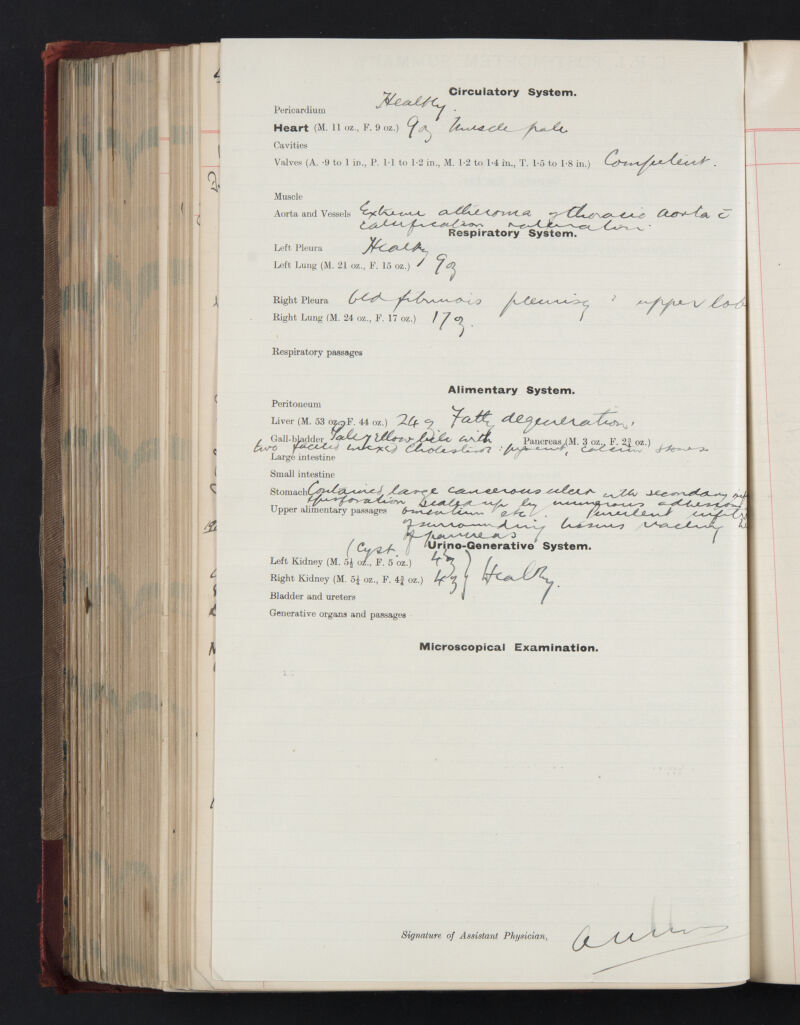 Circulatory System.
Pericardium Healthy.
Heart (M. 11 oz., F. 9 oz.) 9 oz Muscle pale
Cavities
Valves (A. ·9 to 1 in., P. 1·1 to 1·2 in., M. 1·2 to 1·4 in., T. 1·5 to 1·8 in.) Competent.
Muscle
Aorta and Vessels Extreme atheroma of thoracic aorta c̄
calcification
Respiratory System.
Left Pleura Healthy
Left Lung (M. 21 oz., F. 15 oz.) 9 oz
Right Pleura Old fibrinous pleurisy : upper lob
Right Lung (M. 24 oz., F. 17 oz.) 17 oz.
Respiratory passages
Alimentary System.
Peritoneum
Liver (M. 53 oz., F. 44 oz.) 24 oz Fatty degeneration.
Gall-bladder Pale yellow bile with Pancreas (M. 3 oz., F. 2¾ oz.)
two faceted mixed cholesterol: pigment, calcium stones
Large intestine
Small intestine
Stomach Contained large cancerous ulcer with secondary
perforation sealed up by numerous adhesions
Upper alimentary passages omentum etc. Purulent
of surrounding tissues
of pancreas
(Cyst.
Urino-Generative System.
Left Kidney (M. 5½ oz., F. 5 oz.) 4 oz
Right Kidney (M. 5¼ oz., F. 4¾ oz.) 4 oz } Healthy.
Bladder and ureters
Generative organs and passages
Microscopical Examination.
Signature of Assistant Physician,